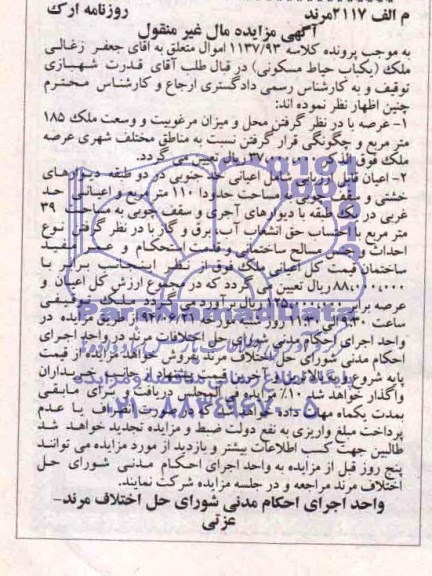 م الف ۲۱۱۷مرند روزنامه ارک
آگهی مزایده مال غیر منقول
به موجب پرونده کلاسه ۱۱۳۷/۹۳ اموال متعلق به آقای جعفر زغالی
ملک (یکباب حیاط مسکونی) در قبال طلب آقای قدرت شهبازی
توقیف و به کارشناس رسمی دادگستری ارجاع و کارشناس محترم
چنین اظهار نظر نموده اند:
۱- عرصه با در نظر گرفتن محل و میزان مرغوبیت و وسعت ملک ۱۸۵
متر مربع و چگونگی قرار گرفتن نسبت به مناطق مختلف شهری عرصه
ملک فوق الذکر ریال تعیین می گردد.
۲- اعیان قابل ارزیابی شامل اعیانی حد جنوبی در دو طبقه دیوارهای
خشتی و سقف چوبی به مساحت حدودا ۱۱۰ متر مربع و اعیانی حد
غربی در یک طبقه با دیوارهای آجری و سقف چوبی به مساحت ۳۹
متر مربع با احتساب حق انشعاب آب، برق و گاز با در نظر گرفتن نوع
احداث و جنس مصالح ساختمانی و قدمت استحکام و عمر مفید
ساختمان قیمت کل اعیانی ملک فوق از نظر اینجانب برابر با
۸۸,۰۰۰,۰۰۰ ریال تعیین می گردد که در مجموع ارزش کل اعیان و
عرصه برابر ۱۲۵,۰۰۰,۰۰۰ ریال برآورد می گردد ملک توقیفی
ساعت ۹:۳۰ الی ۱۱:۳۰ روز شنبه مورخه ۹۴/۰۶/۲۱ از طریق مزایده در
واحد اجرای احکام مدنی شورای حل اختلافات مرند در واحد اجرای
احکام مدنی شورای حل اختلاف مرند بفروش خواهد مزایده از قیمت
پایه شروع و به بالاترین و آخرین قیمت پیشنهاد از جانب خریداران
واگذار خواهد شد ۱۰٪ مزایده فی المجلس دریافت و برای مابقی
بمدت یکماه مهلت داده خواهد شد که در صورت انصراف یا عدم
پرداخت مبلغ واریزی به نفع دولت ضبط و مزایده تجدید خواهد شد
طالبین جهت کسب اطلاعات بیشتر و بازدید از مورد مزایده می توانند
پنج روز قبل از مزایده به واحد اجرای احکام مدنی شورای حل
اختلاف مرند مراجعه و در جلسه مزایده شرکت نمایند.
واحد اجرای احکام مدنی شورای حل اختلاف مرند–
عزتی
ParsNamadData
پایگاه اطلاع رسانی مناقصه و مزایده
۰۲۱-۸۸۳۴۹۶۷۰-۵